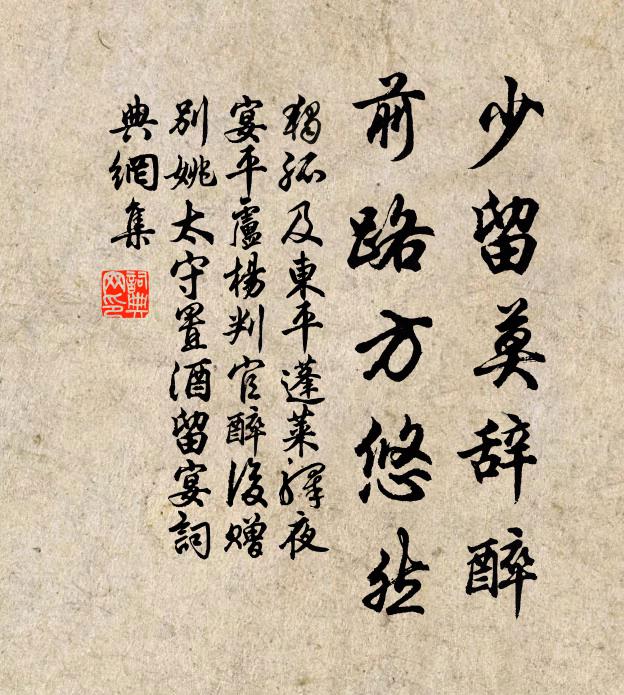 少留莫辞醉
前路方悠然
独孤及東平蓬萊驛夜
宴平盧楊判官醉後贈
別姚太守置酒留宴詞
典網集
詞典
网印